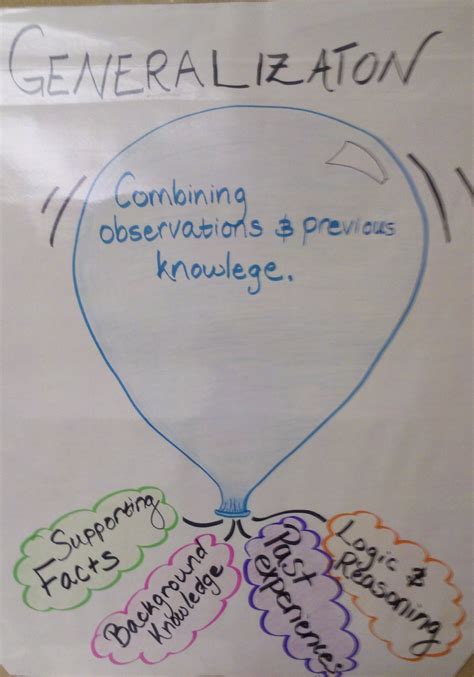 GENERALIZATON
Combining
observations & previous
knowlege.
Supporting
Facts
Background
Knowledge
Past
experiences
Logic &
Reasoning